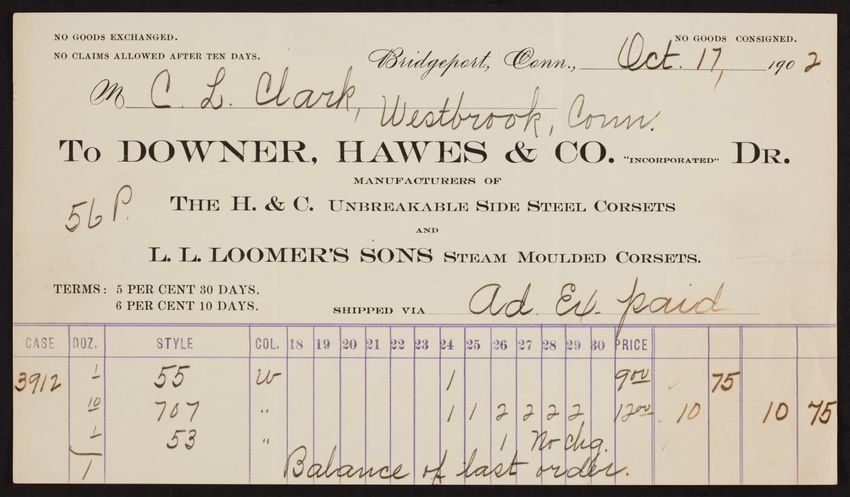 NO GOODS EXCHANGED.
NO CLAIMS ALLOWED AFTER TEN DAYS.
NO GOODS CONSIGNED.
Bridgeport, Conn., Oct. 17, 1902
M C. L. Clark, Westbrook, Conn.
To DOWNER, HAWES & CO. "INCORPORATED" DR.
MANUFACTURERS OF
56 P.
THE H. & C. UNBREAKABLE SIDE STEEL CORSETS
AND
L. L. LOOMER'S SONS STEAM MOULDED CORSETS.
TERMS: 5 PER CENT 30 DAYS.
6 PER CENT 10 DAYS.
SHIPPED VIA Ad. Ex. paid
CASE DOZ. STYLE COL. 18 19 20 21 22 23 24 25 26 27 28 29 30 PRICE
3912 1 55 W 1 9.00 75
10 707 " 1 1 2 2 2 2 12.00 10 10 75
1 53 " 1 No chg.
1 Balance of last order.